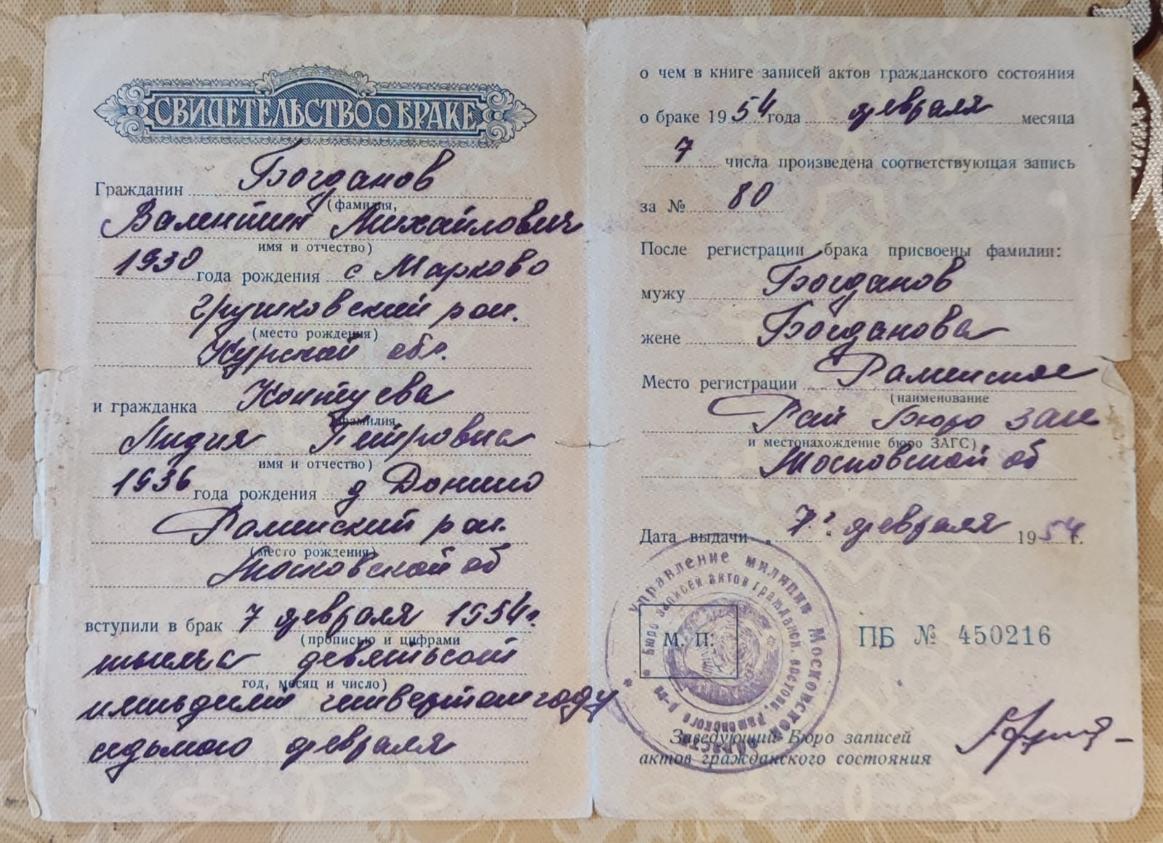 СВИДЕТЕЛЬСТВО о БРАКЕ
Гражданин Богданов
(фамилия,
Валентин Михайлович
имя и отчество)
1930 года рождения с Марково
рои.
(место рождения)
Курской обл.
и гражданка
фамилия
Лидия Петровна
имя и отчество)
1936 года рождения д Донино
Раменский рои.
(место рождения)
Московской об
вступили в брак 7 февраля 1954г.
(прописью и цифрами
тысяча девятьсот
год, месяц и число)
пятьдесят четвертом году
седьмого февраля
о чем в книге записей актов гражданского состояния
о браке 1954 года февраля месяца
7 числа произведена соответствующая запись
за № 80
После регистрации брака присвоены фамилии:
мужу Богданов
жене Богданова
Место регистрации Раменское
(наименование
Рай Бюро загс
и местонахождение бюро ЗАГС)
Московской об
Дата выдачи 7 февраля 1954г.
Управление милиции Московской области
Бюро записей актов гражданск. состоян. Раменского р-на
М. П.
ПБ № 450216
Заведующий Бюро записей
актов гражданского состояния